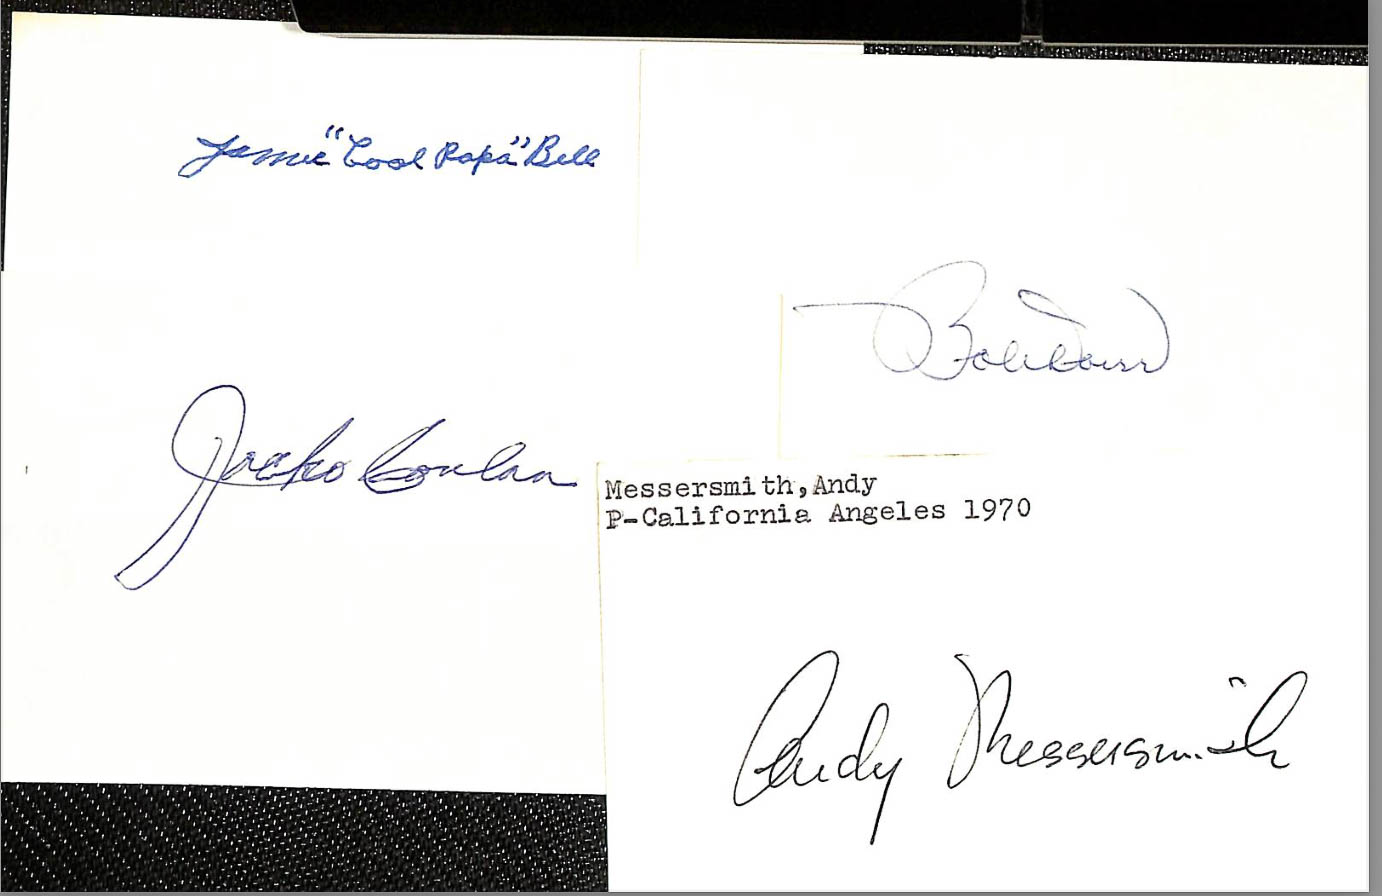 James "Cool Papa" Bell
Bob Doerr
Jocko Conlan
Messersmith, Andy
P-California Angeles 1970
Andy Messersmith